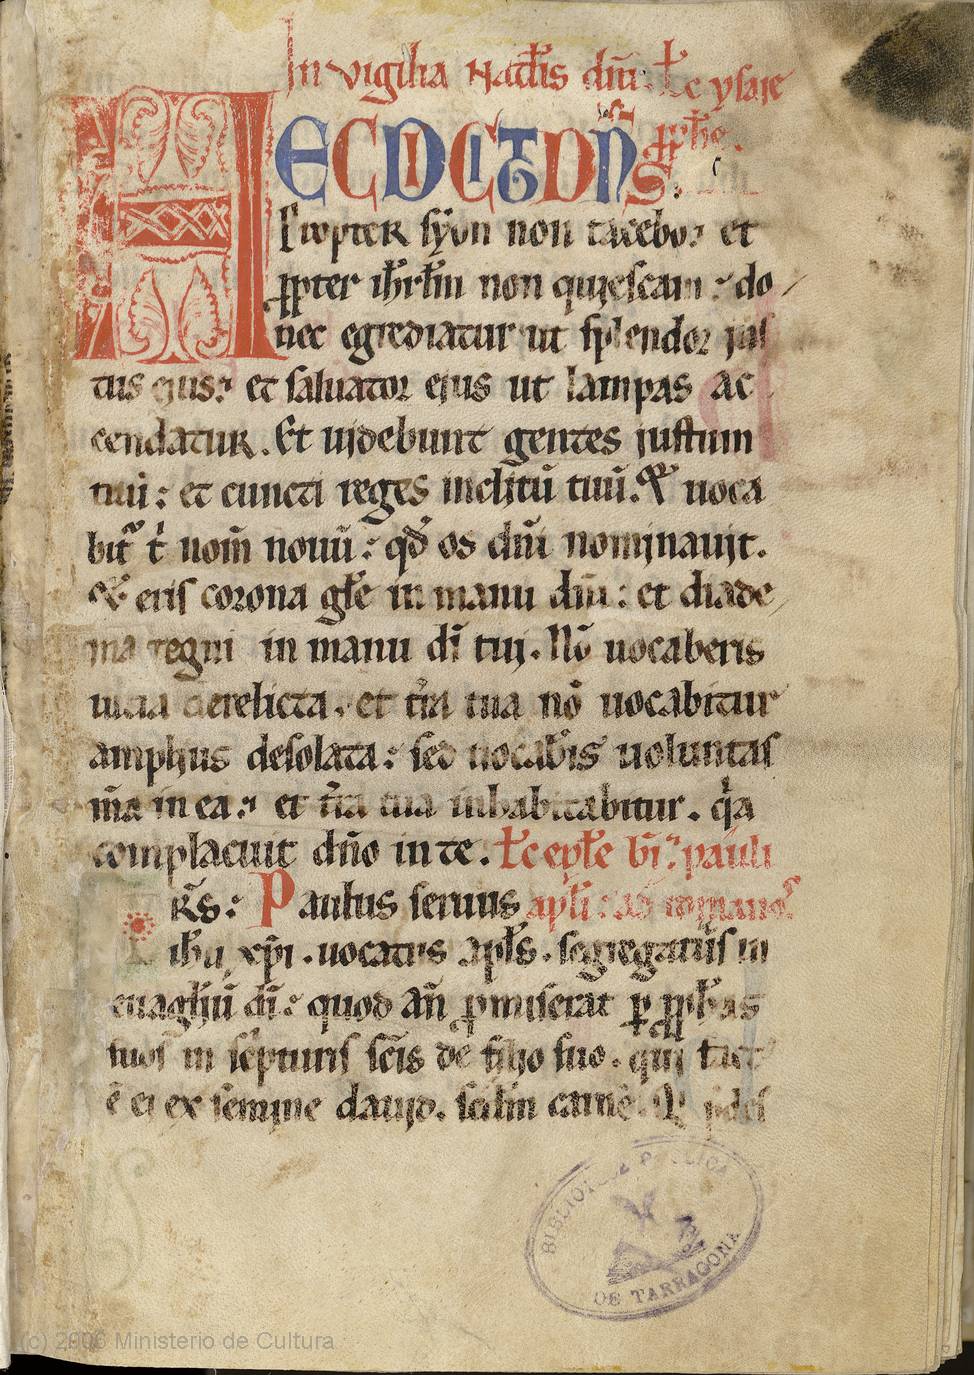 In vigilia Nat̅lis dn̅i. ł̅c ysaie
HEC DICIT DN̅S: ꝓph̅e.
Propter syon non tacebo: et
ꝓpter ih̅rl̅m non quiescam: do
nec egrediatur ut splendor jus
tus ejus: et saluator ejus ut lampas ac
cendatur. Et uidebunt gentes justum
tuū: et cuncti reges inclitū tuū. Et uoca
bit̅ t̅ nom̅ nouū: qd̅ os dn̅i nominauit.
Et eris corona gl̅e in manu dn̅i: et diade
ma regni in manu di̅ tui. Nō uocaberis
ultra derelicta. et t̅ra tua nō uocabitur
amplius desolata: sed uocab̅is uoluntas
m̅a in ea: et t̅ra tua inhabitabitur. q̅a
complacuit dn̅o in te. ł̅c epl̅e bi̅: pauli
R̅S: Paulus seruus apl̅i: ad romanos
ih̅u xp̅i. uocatus apl̅s. segregatus in
euāgl̅iū di̅: quod an̅ ꝓmiserat ꝑ ꝓph̅as
suos in sc̅pturis sc̅is de filio suo. qui fact̅
ē ei ex semine dauid. sc̅dm carnē.
BIBLIOTECA PUBLICA
DE TARRAGONA
(c) 2006 Ministerio de Cultura